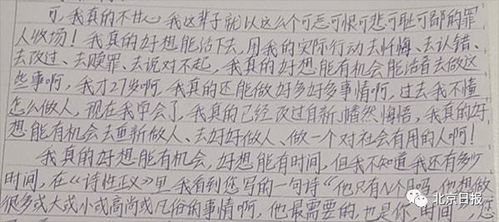 可,我真的不甘心我这辈子就以这么个可恶可恨可悲可耻可鄙的罪
人收场!我真的好想能活下去,用我的实际行动去忏悔、去认错、
去改过、去赎罪、去说对不起,我真的好想能有机会能活着去做这
些事啊,我才27岁啊,我真的还能做好多好多事情啊,过去我不懂
怎么做人,现在我学会了,我真的已经改过自新、幡然悔悟,我真的好
想能有机会去重新做人、去好好做人、做一个对社会有用的人啊!
我真的好想能有机会,好想能有时间,但我不知道我还有多少
时间,在《诗性正义》里我看到您写的一句诗“他只有N个月吗,他想做
很多或大或小或高尚或凡俗的事情啊,他最需要的,也是你,时间”,
北京日报